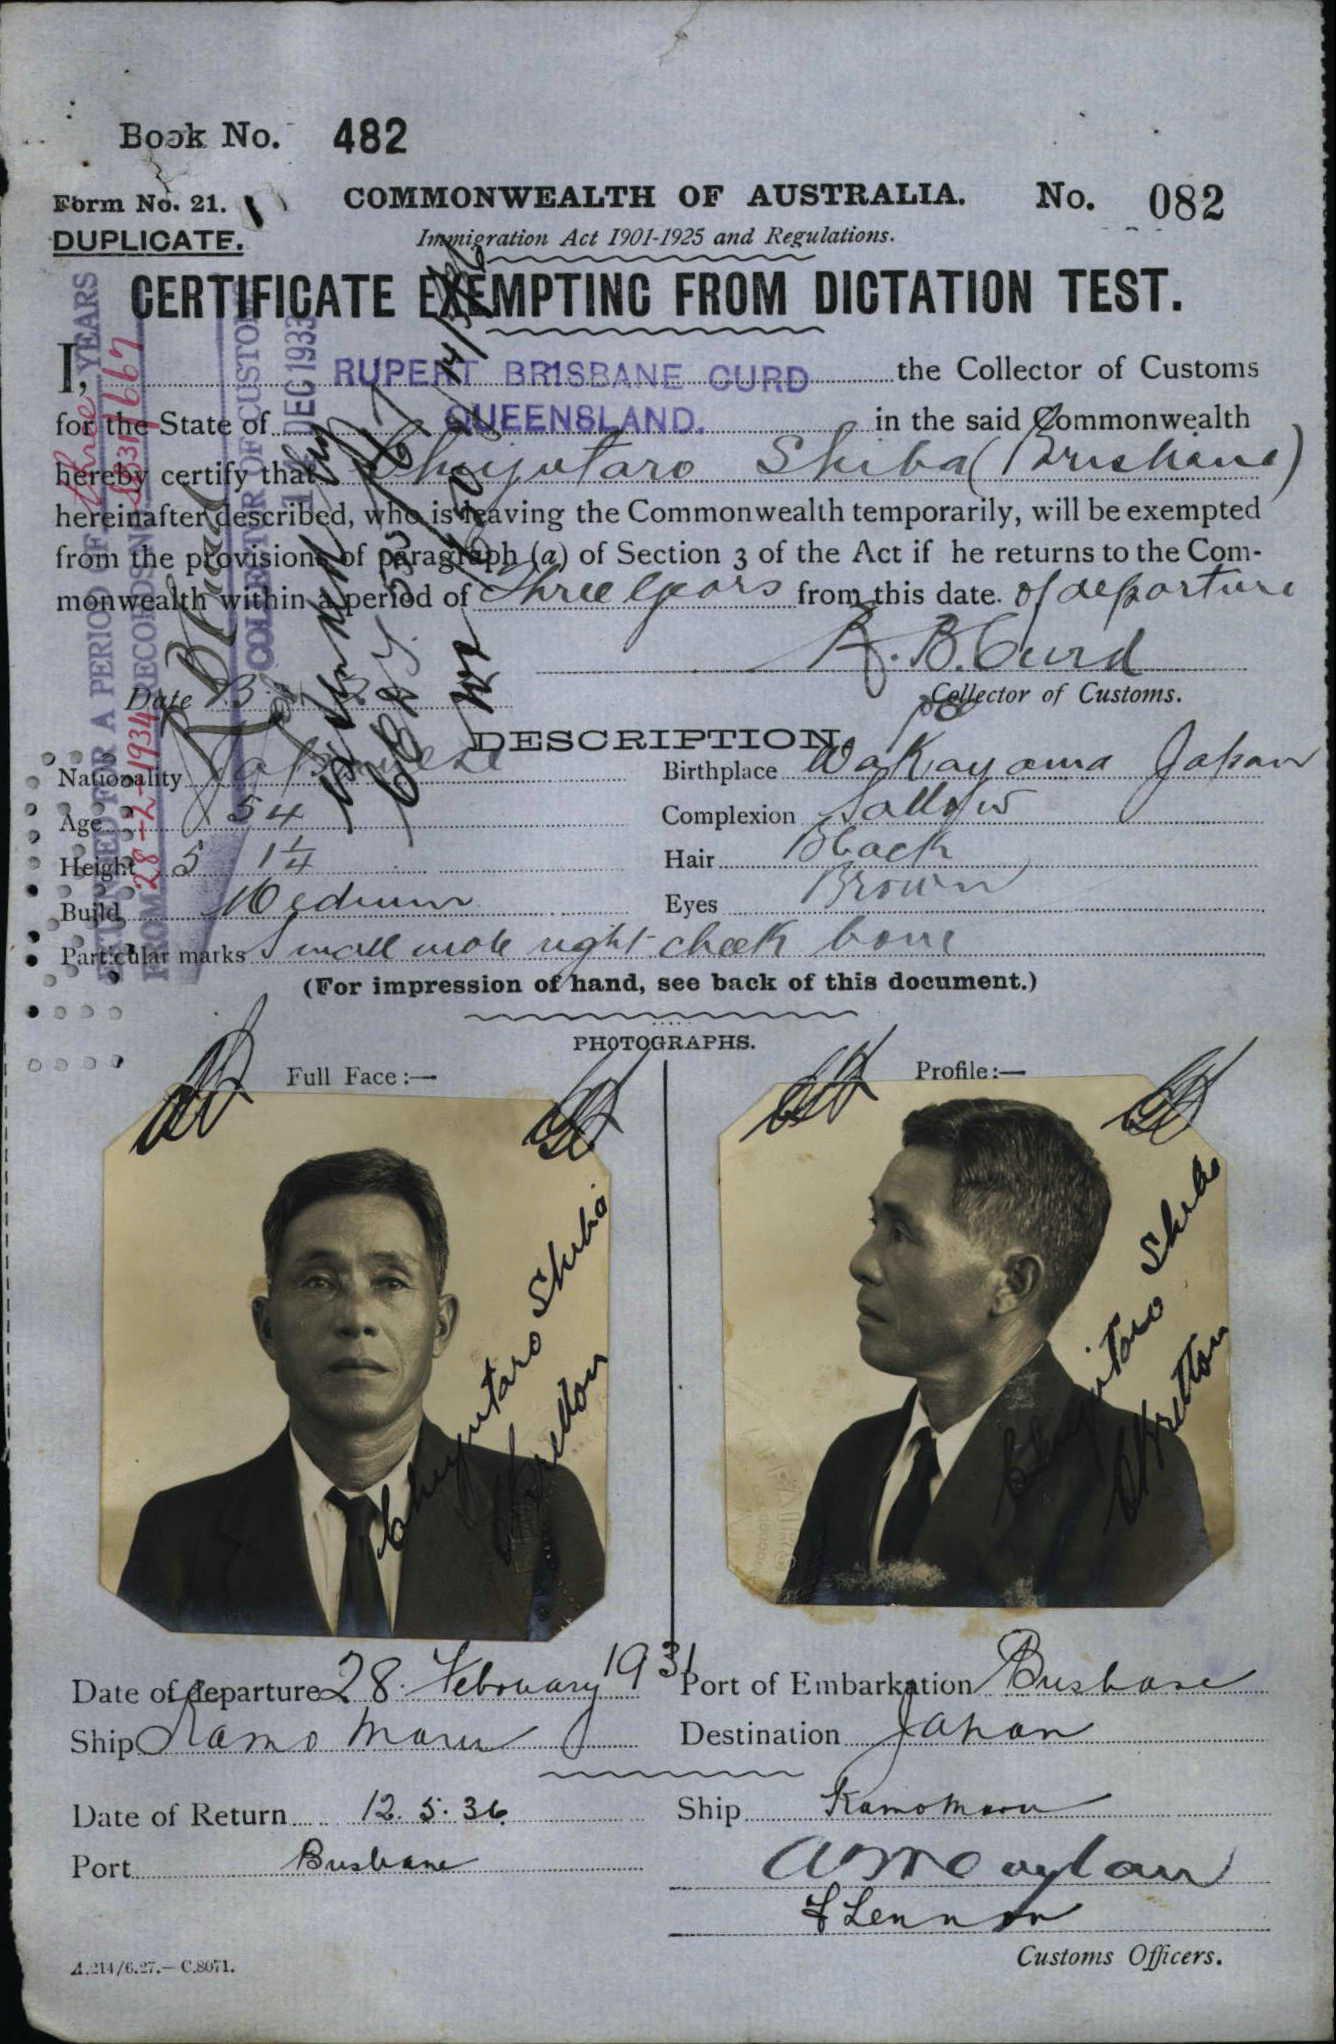 Book No. 482
Form No. 21.
COMMONWEALTH OF AUSTRALIA.
No. 082
DUPLICATE.
Immigration Act 1901-1925 and Regulations.
CERTIFICATE EXEMPTING FROM DICTATION TEST.
I, RUPERT BRISBANE CURD the Collector of Customs
for the State of QUEENSLAND. in the said Commonwealth
hereby certify that Chuyutaro Shiba (Brisbane)
hereinafter described, who is leaving the Commonwealth temporarily, will be exempted
from the provisions of paragraph (a) of Section 3 of the Act if he returns to the Com-
monwealth within a period of three years from this date of departure
R. B. Curd
Date
Collector of Customs.
EXTENDED FOR A PERIOD OF three YEARS
FROM 28-2-1934 RECORDS
COLLECTOR OF CUSTOMS
DEC 1933
DESCRIPTION
Nationality Japanese
Birthplace Wakayama Japan
Age 54
Complexion Sallow
Height 5 1 1/4
Hair Black
Build Medium
Eyes Brown
Particular marks Small mole right cheek bone
(For impression of hand, see back of this document.)
PHOTOGRAPHS.
Full Face :—
Profile :—
Chuyutaro Shiba
Chuyutaro Shiba
Date of departure 28 February 1931
Port of Embarkation Brisbane
Ship Kamo Maru
Destination Japan
Date of Return 12.5.36
Ship Kamo Maru
Port Brisbane
F Lennon
Customs Officers.
A.214/6.27.—C.8071.